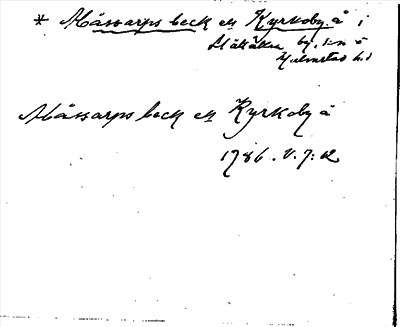 * Måssarps beck el Kyrkoby å i
Slättåkra by, sn o
Halmstad hd
Måssarps beck el Kyrkoby å
1786. V. 7:12